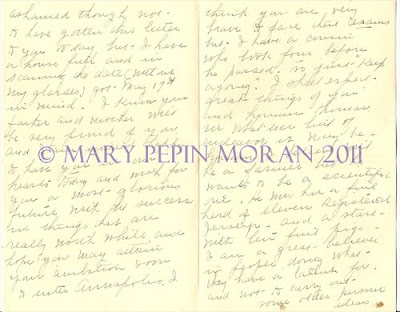 ashamed though not
to have gotten this letter
to you today, but I have
a house full and in
scanning the date (without
my glasses) got May 17th
in mind. I know your
father and mother will
be very proud of you
and
to have you
hearts today and wish for
you a most glorious
future with the success
in things that are
really worth while and
hope you may attain
your ambition soon
to enter Annapolis. I
think you are very
brave to face that exams
but I have a cousin
who took four before
he passed, so just "Keep
agoing." I shall expect
great things of you
and
© MARY PEPIN MORAN 2011
be a farmer
wants to be a scientific
one. He now has a fine
herd of eleven Registered
Jerseys - and a start
with five fine pigs -
I am a great believer
in people doing what
they have a talent for
and not to carry out
some older persons
ideas.